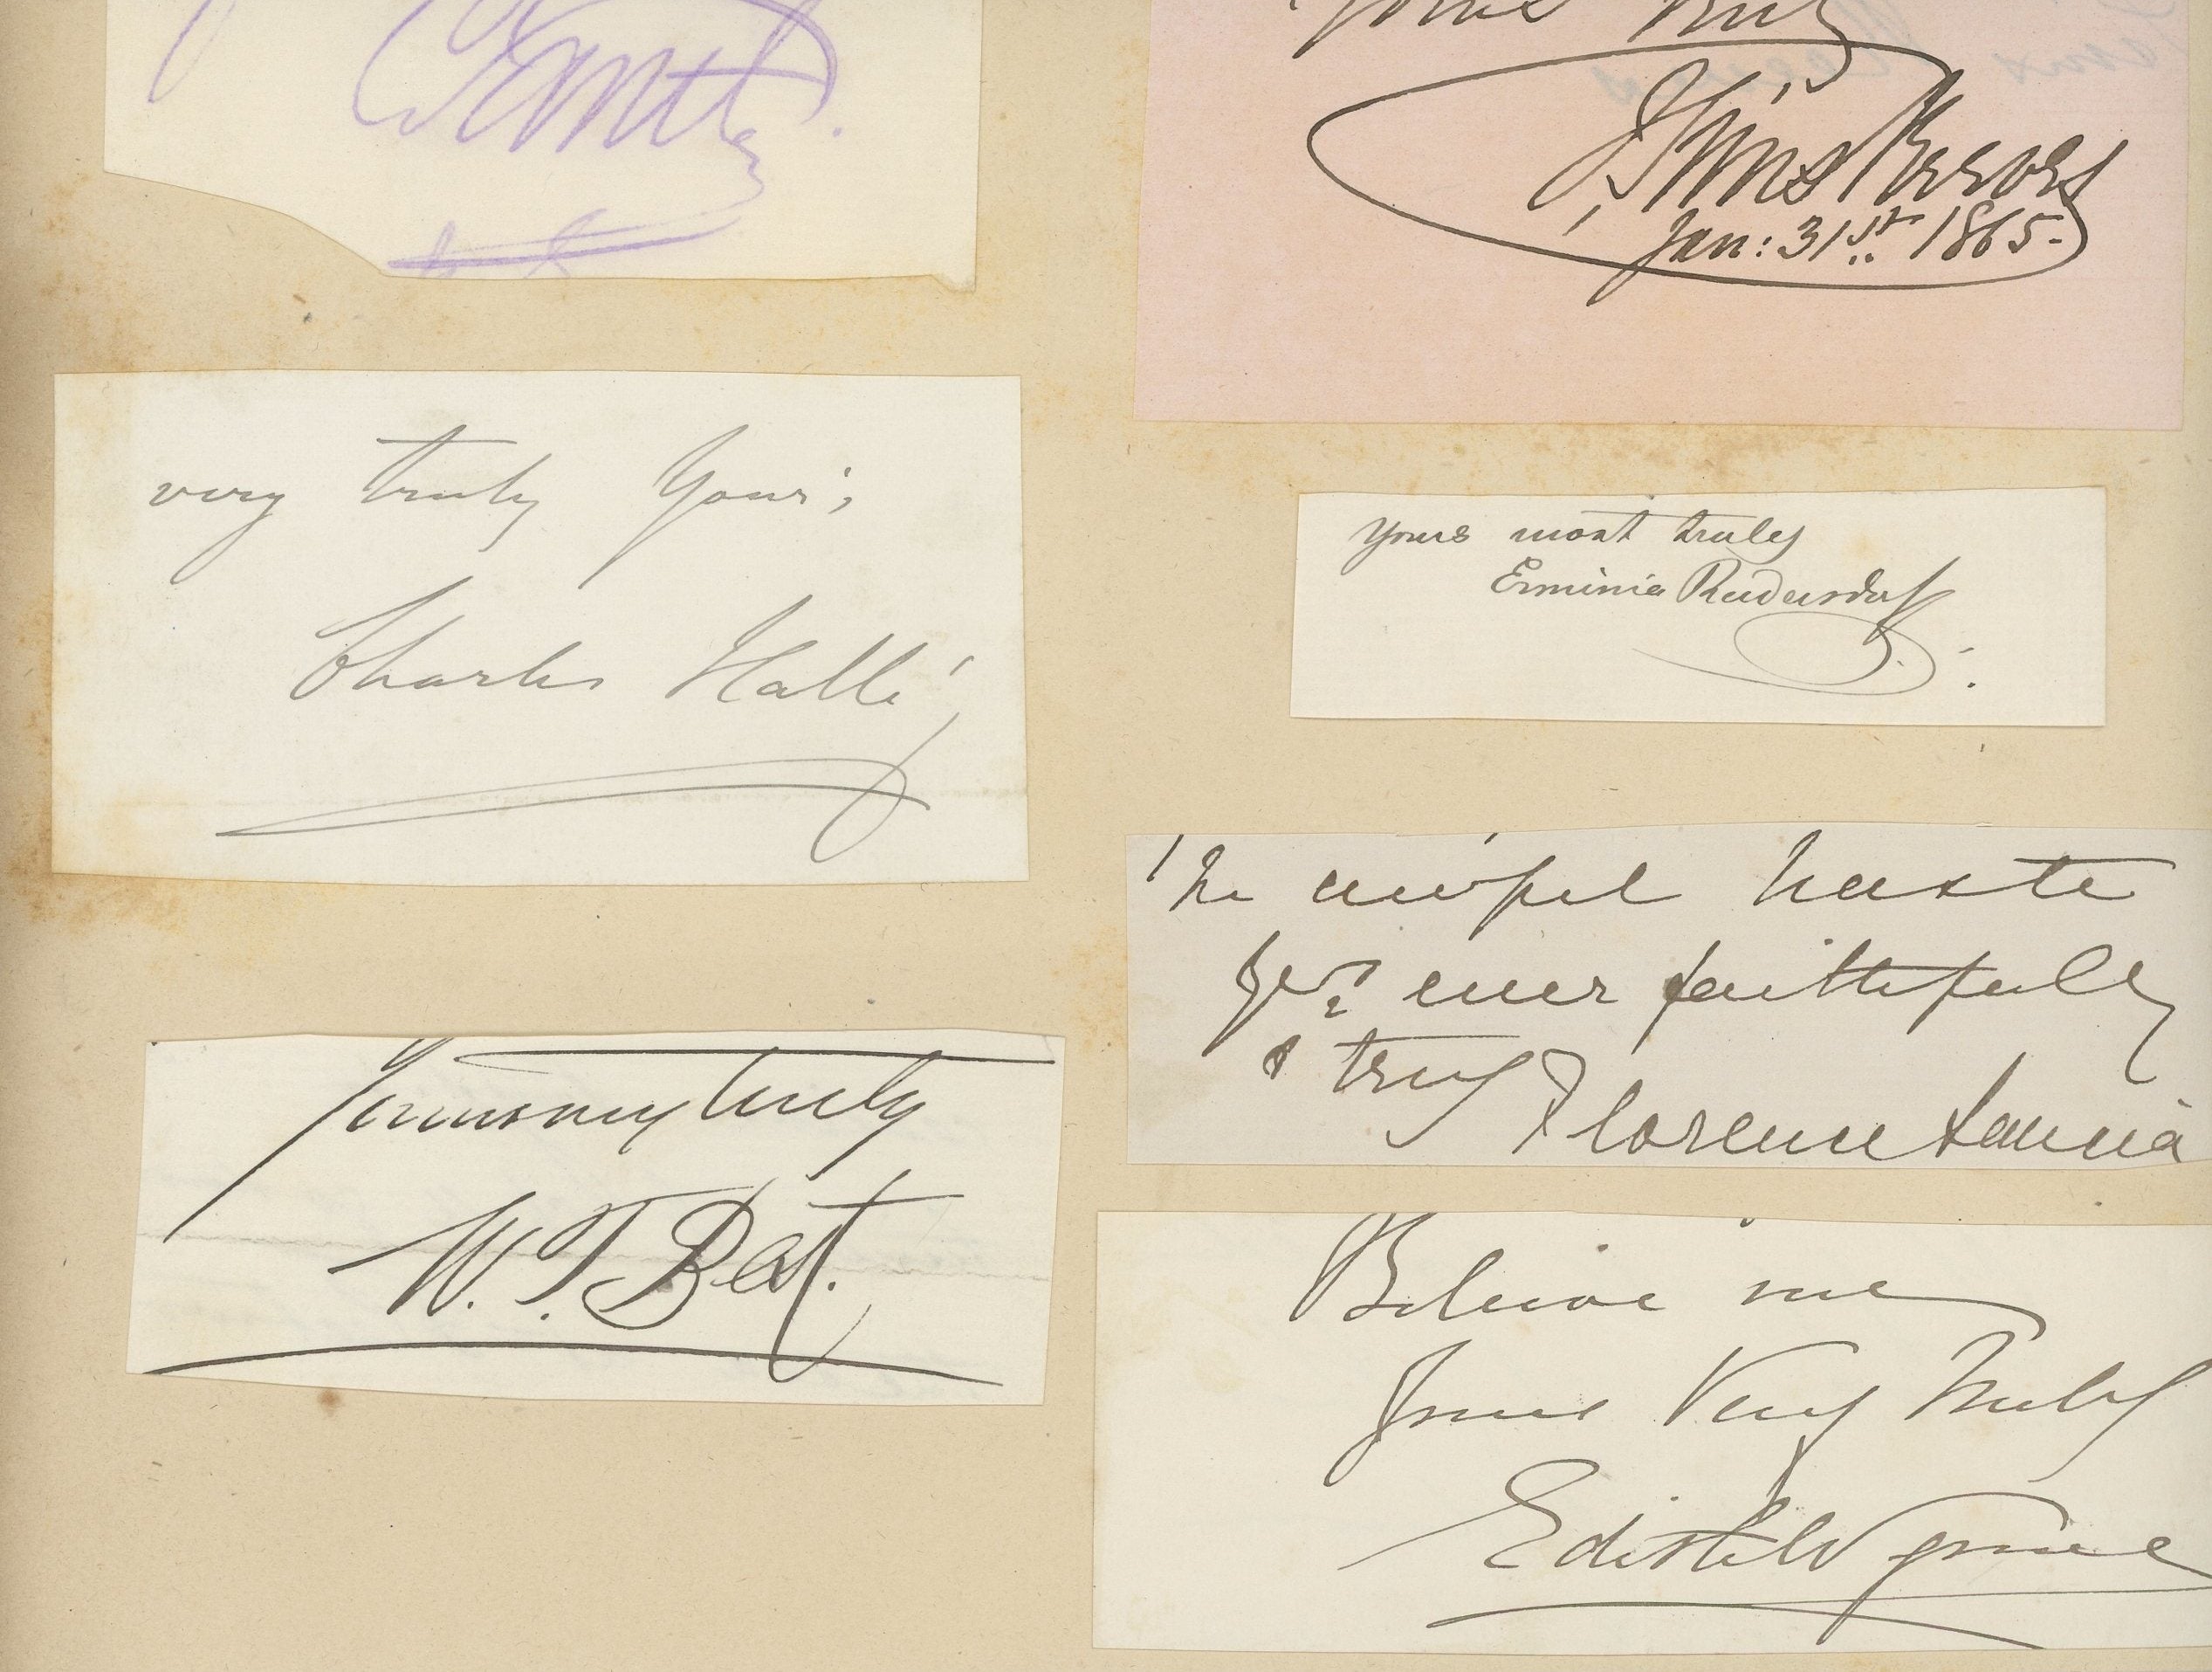 Yours truly
J Sims Reeves
Jan: 31st 1865.
very truly yours,
Charles Hallé
yours most truly
Erminia Rudersdorff
In awful haste
Yrs ever faithfully
& truly Florence Lancia
Yours very truly
W. T. Best.
Believe me
Yours Very Truly
Edith Wynne